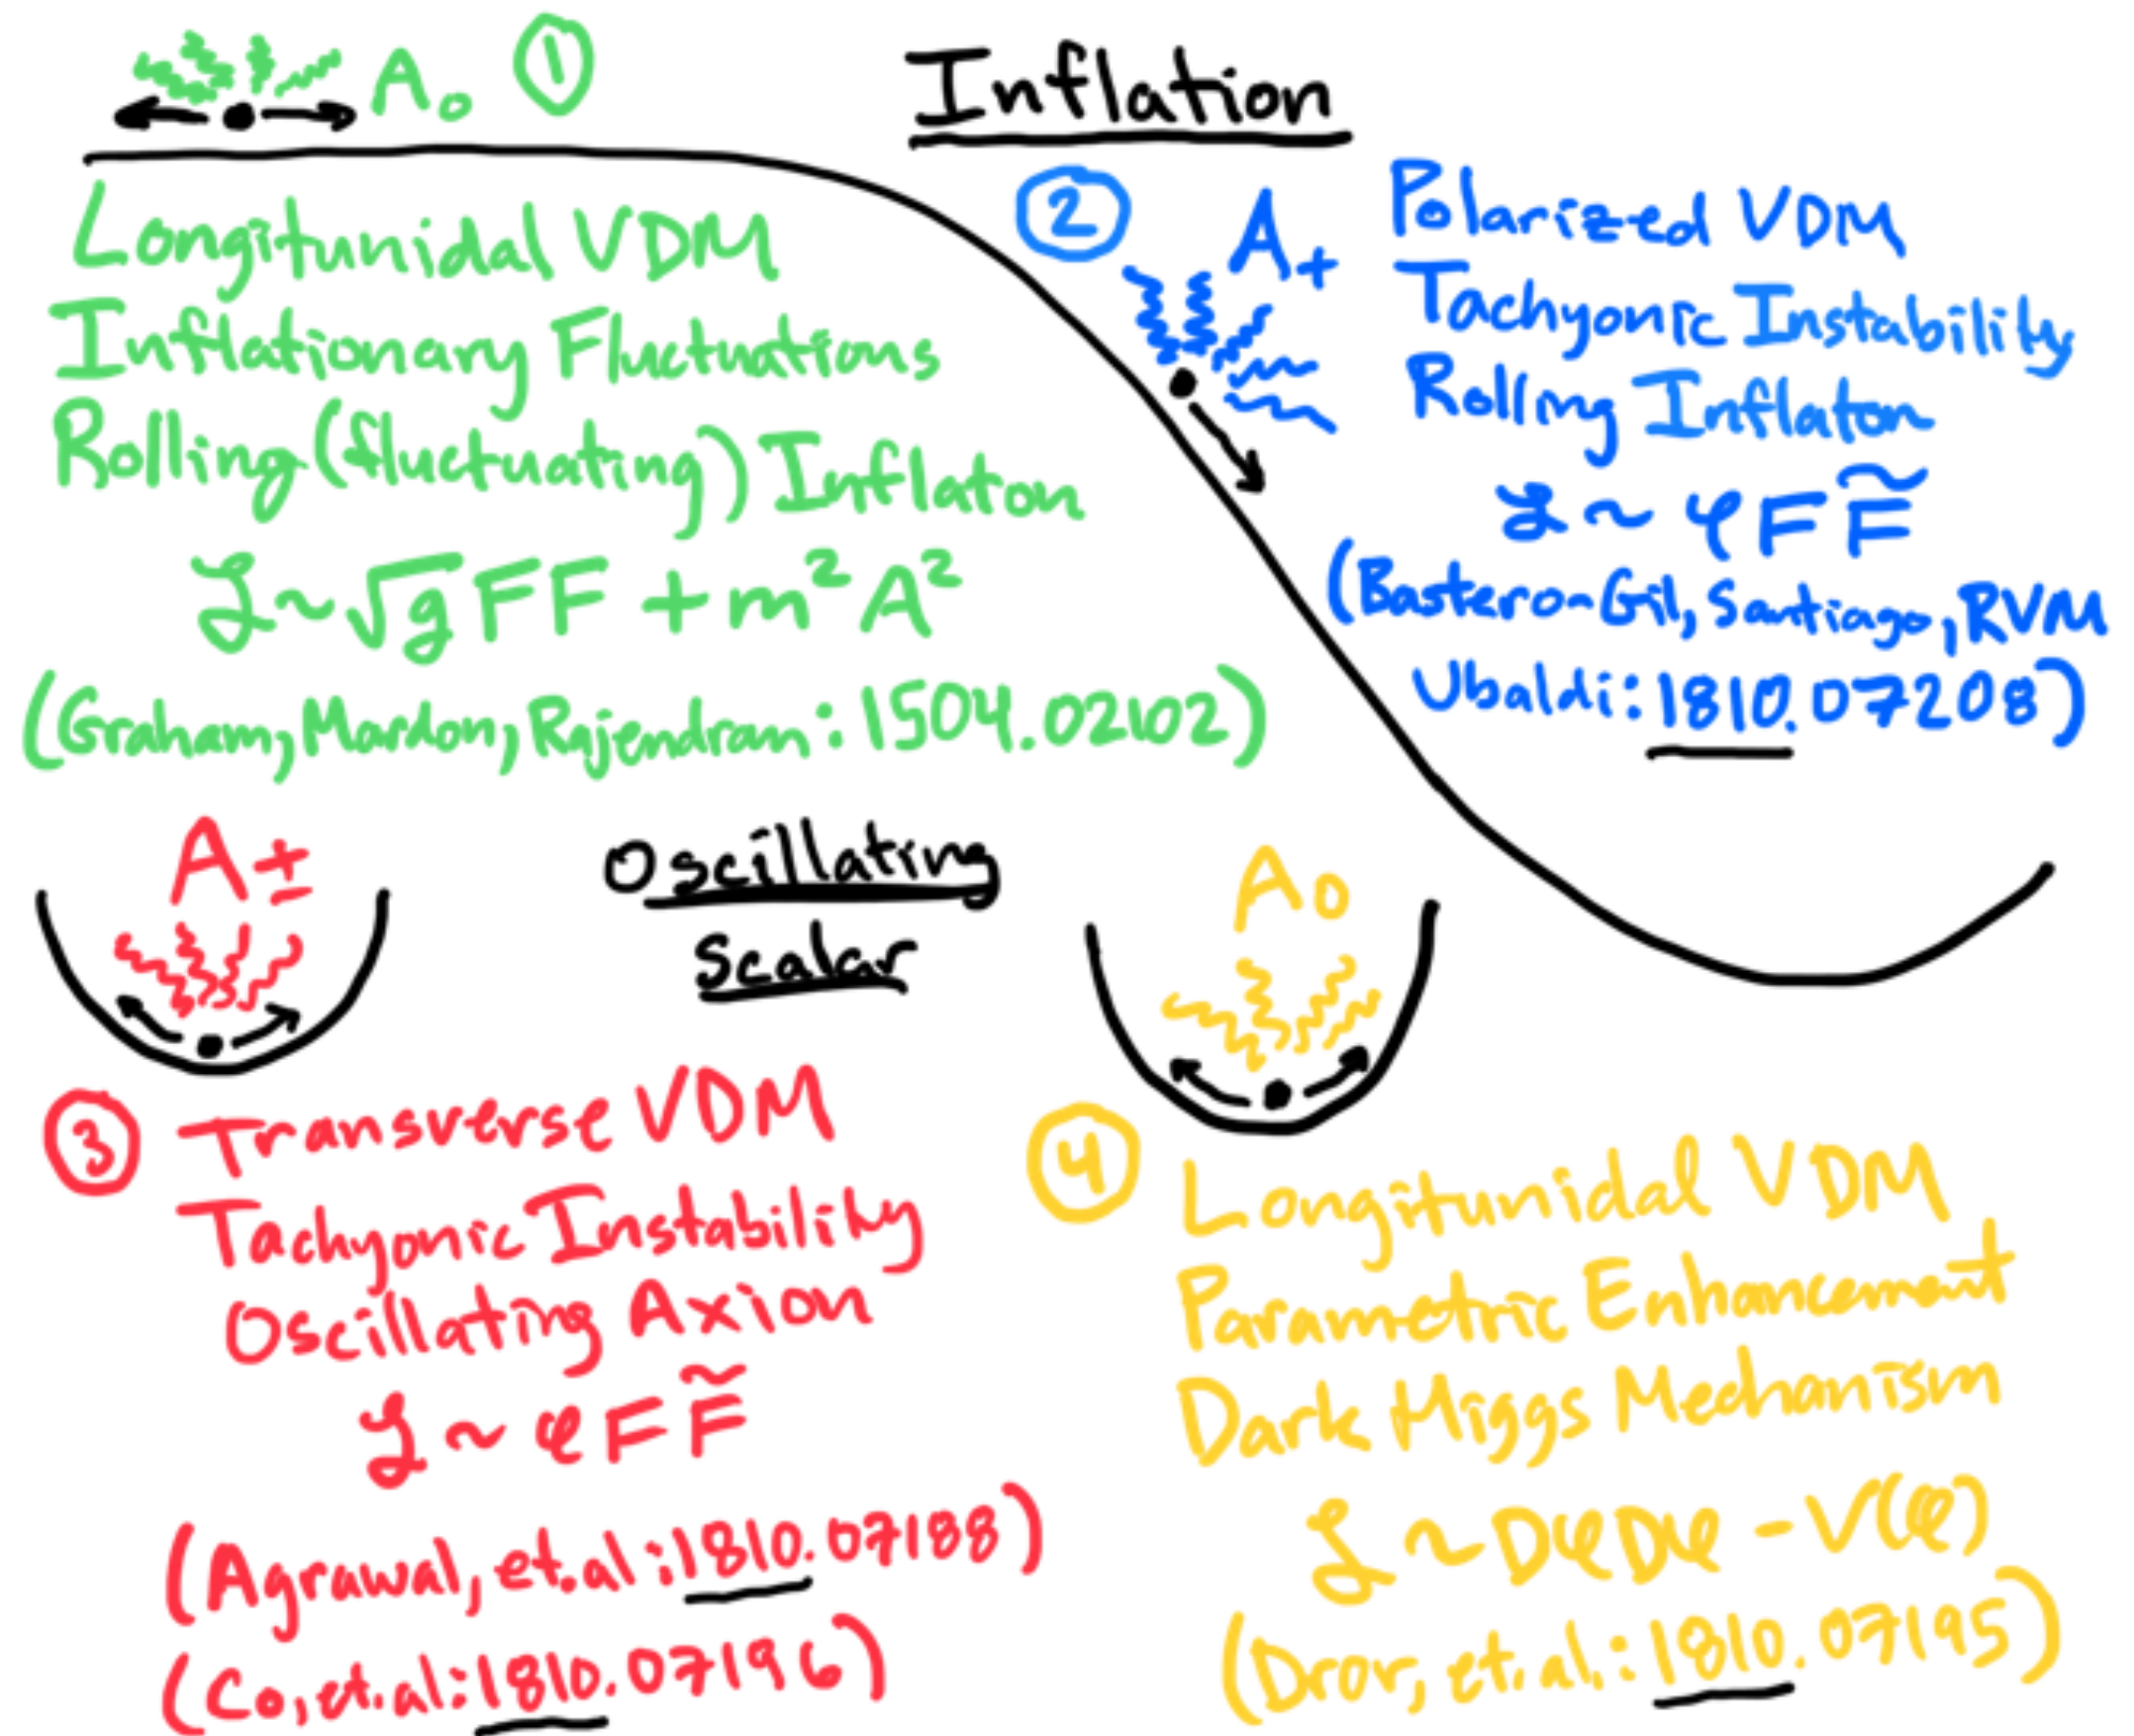 Inflation
A₀ ①
Longitunidal VDM
Inflationary Fluctuations
Rolling (fluctuating) Inflaton
ℒ ~ √g FF + m² A²
(Graham, Mardon, Rajendran : 1504.02102)
② A₊
Polarized VDM
Tachyonic Instability
Rolling Inflaton
ℒ ~ φ F F̃
(Bastero-Gil, Santiago, RVM
Ubaldi: 1810.07208)
Oscillating
Scalar
A±
③ Transverse VDM
Tachyonic Instability
Oscillating Axion
ℒ ~ φ F F̃
(Agrawal, et.al : 1810.07188)
(Co, et.al: 1810.07196)
A₀
④ Longitunidal VDM
Parametric Enhancement
Dark Higgs Mechanism
ℒ ~ DφDφ - V(φ)
(Dror, et. al.: 1810.07195)